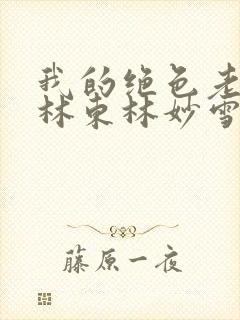 我的绝色老
林东林妙雪
藤原一夜